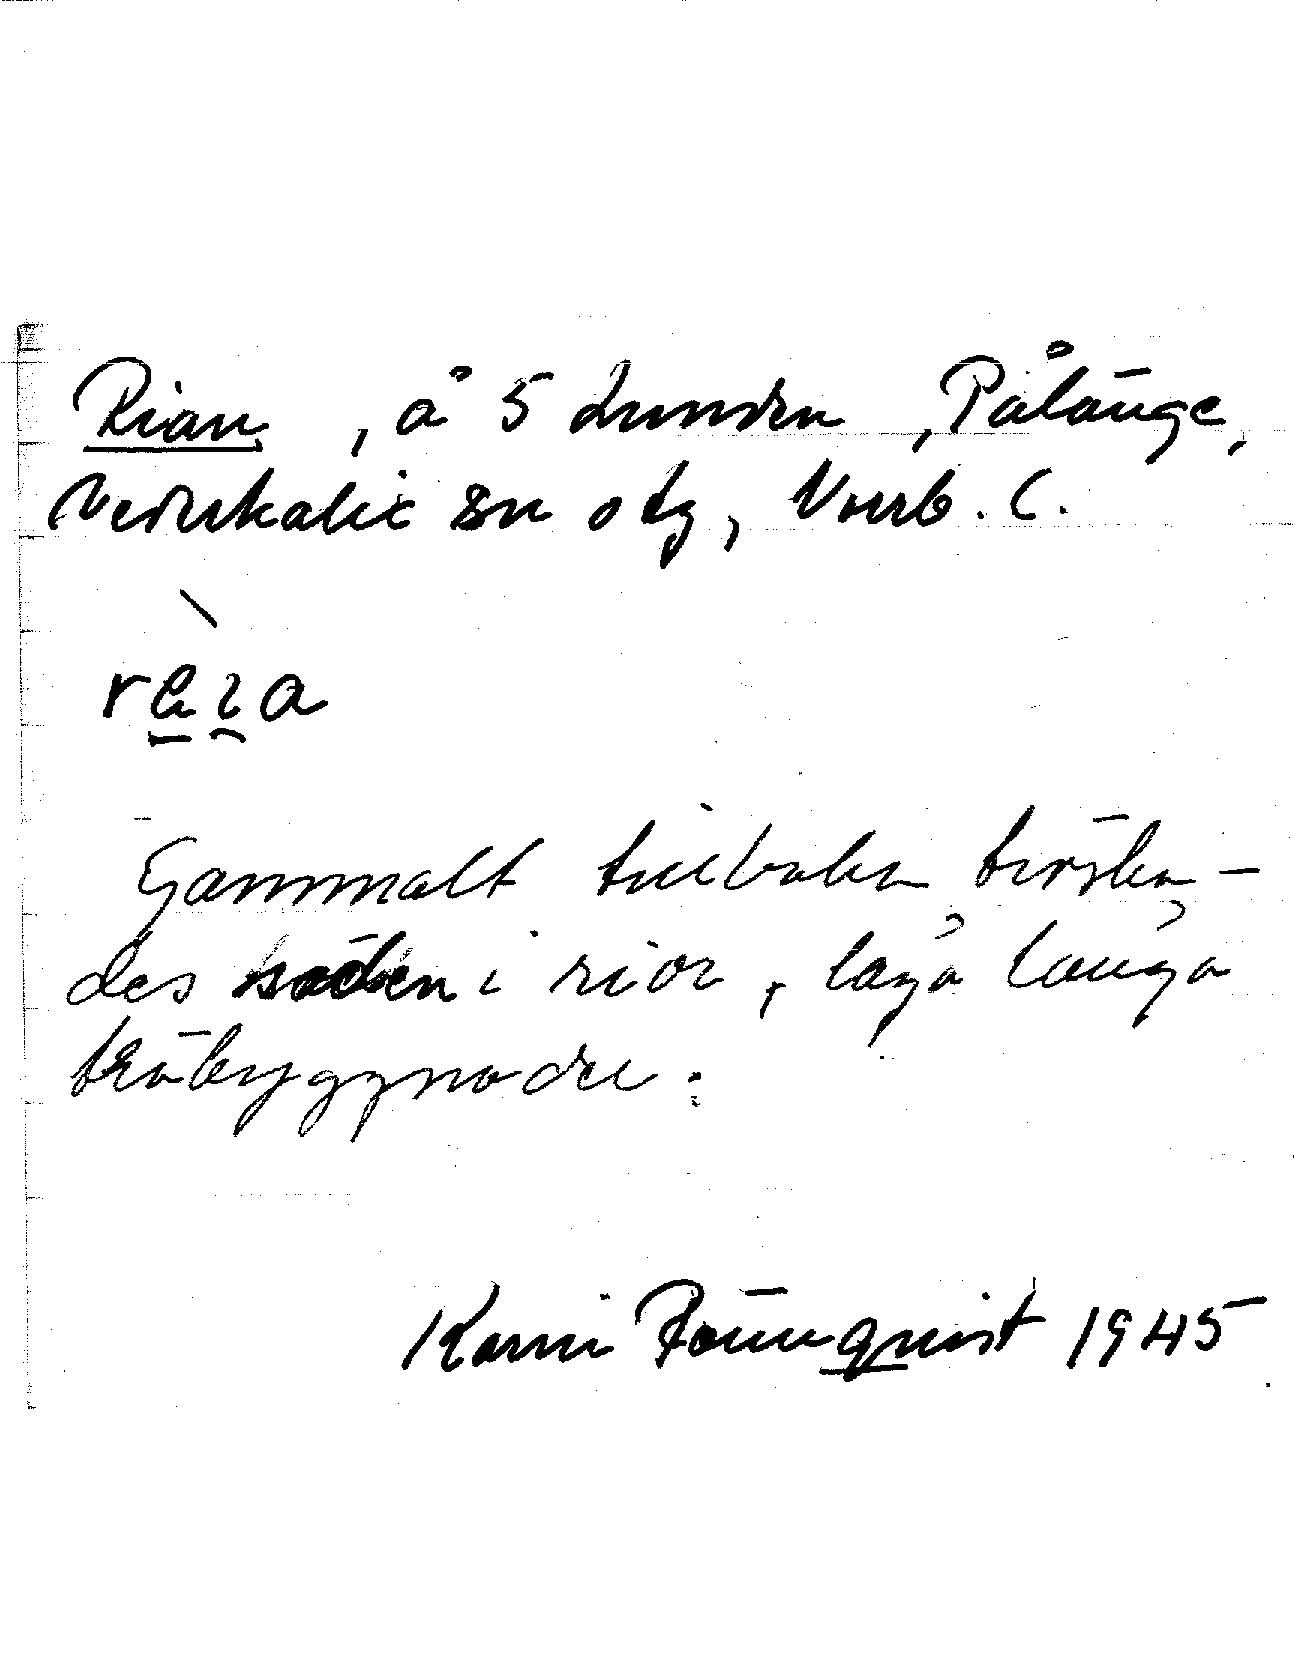 Rian, å 5 Lunden, Pålänge,
Nederkalix sn o tg, Norrb. C.
rɛ̀ɩa
Gammalt tillbaka tröska-
des säden i rior, låga långa
träbyggnader.
Karin Rönnquist 1945